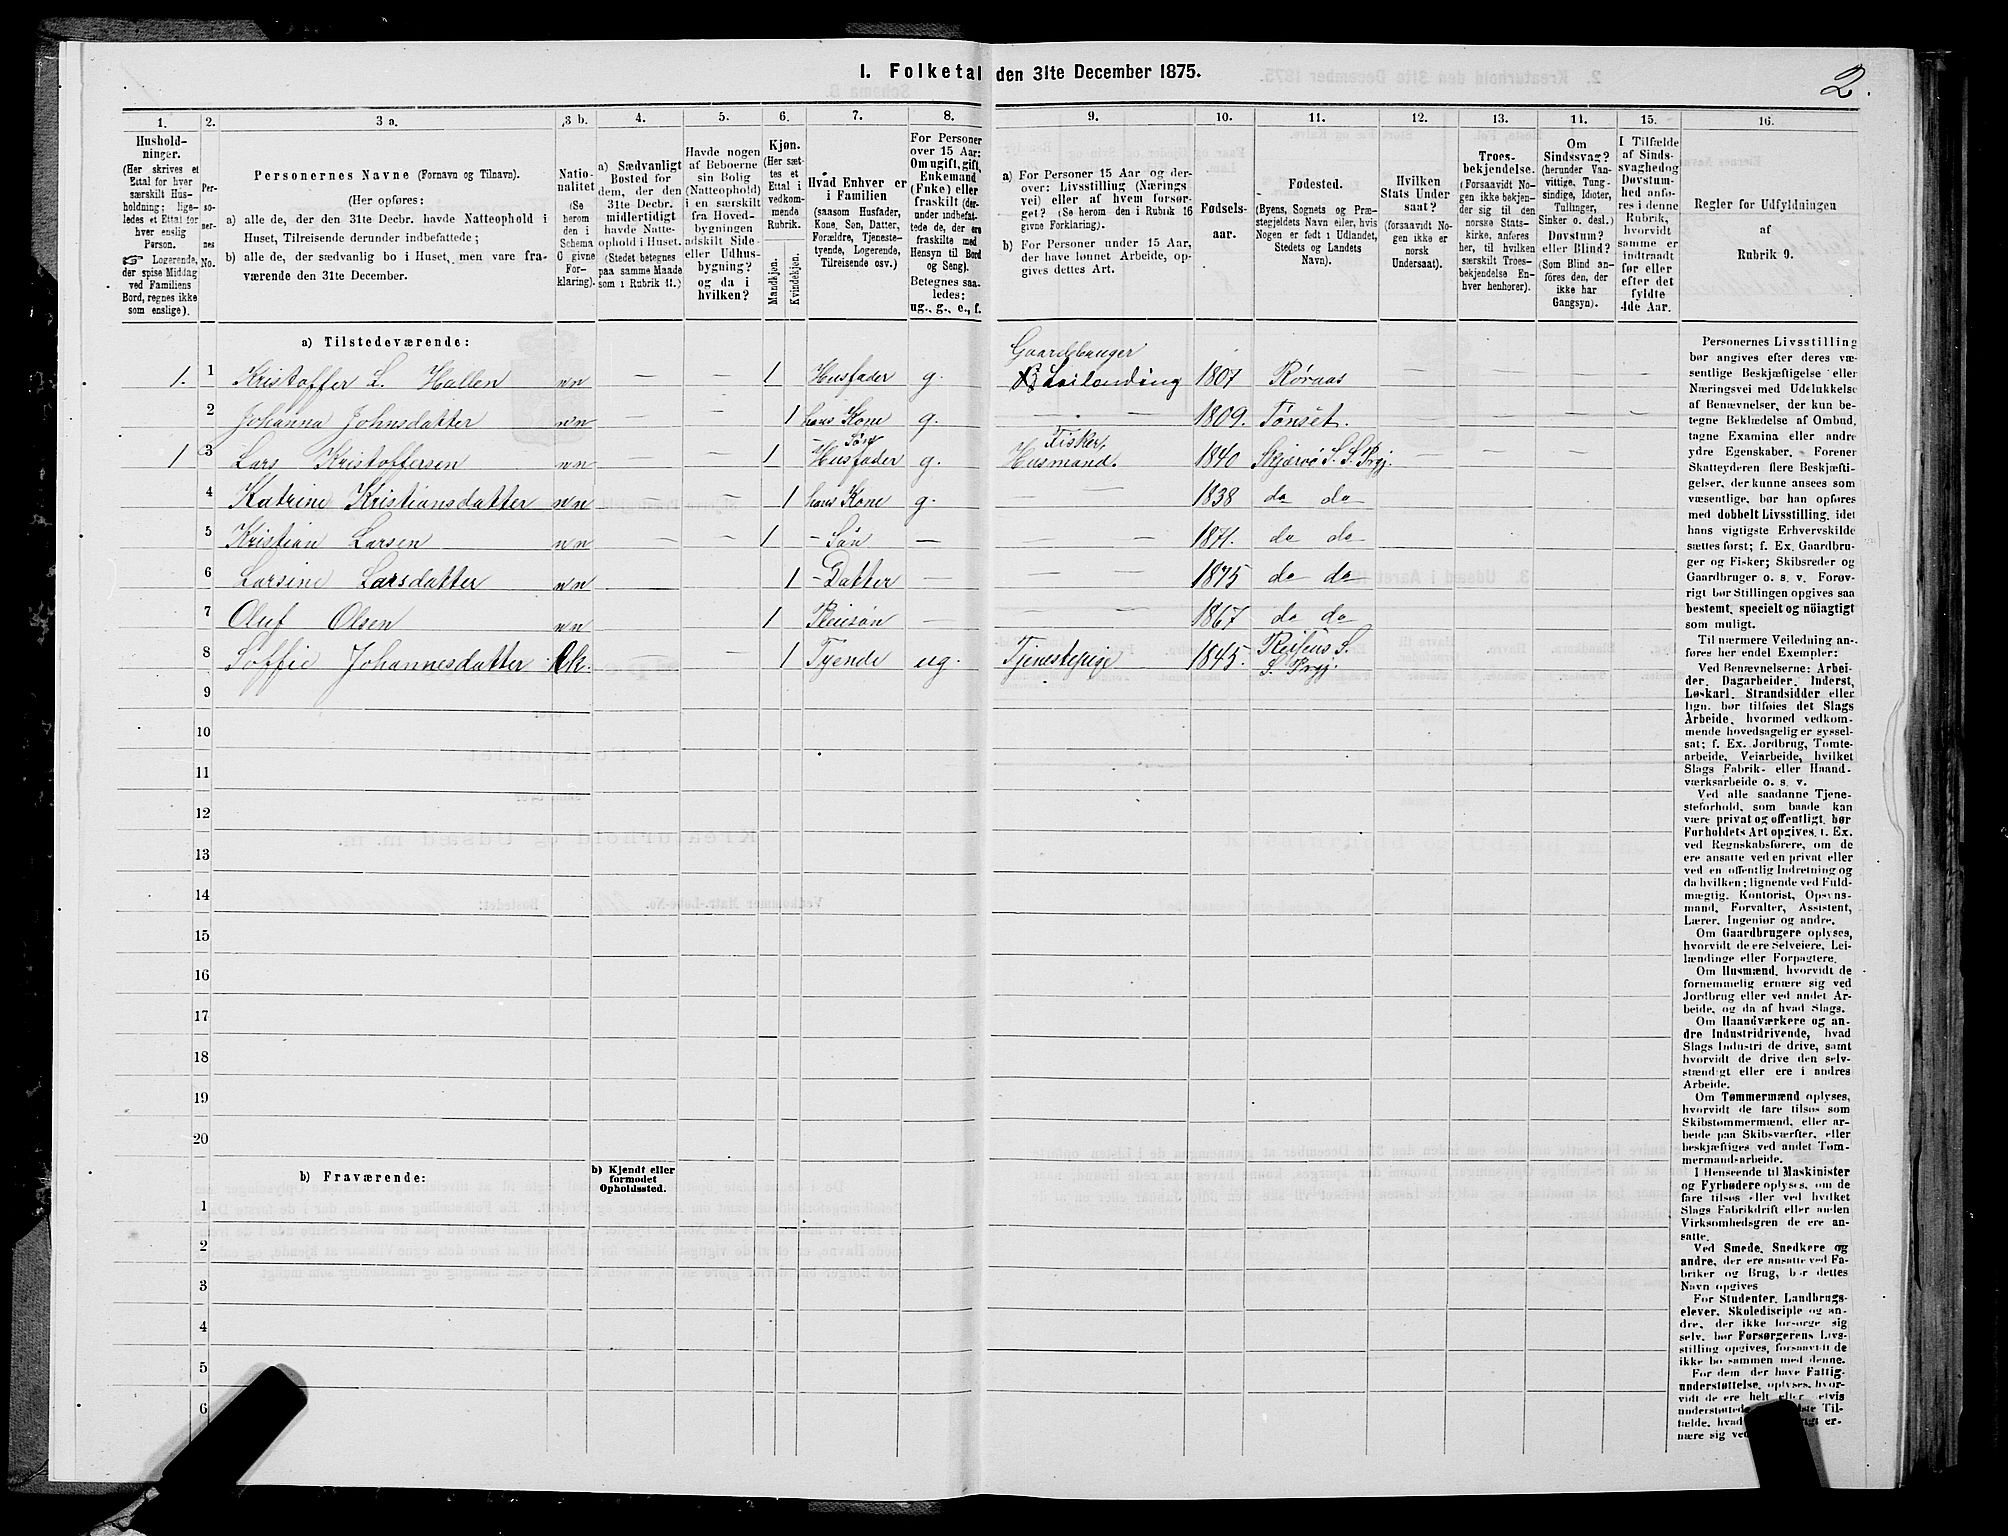 I. Folketal den 31te December 1875.
2.
1. 2. 3 a. 3 b. 4. 5. 6. 7. 8. 9. 10. 11. 12. 13. 11. 15. 16.
Hushold-
ninger.
(Her skrives et
Ettal for hver
særskilt Hus-
holdning; lige-
ledes et Ettal for
hver enslig
Person.
☞ Logerende,
der spise Middag
ved Familiens
Bord, regnes ikke
som enslige).
Per-
so-
ner-
nes
No.
Personernes Navne (Fornavn og Tilnavn).
(Her opføres:
a) alle de, der den 31te Decbr. havde Natteophold i
Huset, Tilreisende derunder indbefattede;
b) alle de, der sædvanlig bo i Huset, men vare fra-
værende den 31te December.
Natio-
nalitet
(Se
herom
den i
Schema
C givne
For-
klaring).
a) Sædvanligt
Bosted for
dem, der den
31te Decbr.
midlertidigt
havde Natte-
ophold i Huset.
(Stedet betegnes
paa samme Maade
som i Rubrik 11.)
Havde nogen
af Beboerne
sin Bolig
(Natteophold)
i en særskilt
fra Hoved-
bygningen
adskilt Side-
eller Udhus-
bygning?
og da i
hvilken?
Kjøn.
(Her sæt-
tes et
Ettal i
vedkom-
mende
Rubrik.
Mandkjøn.
Kvindekjøn.
Hvad Enhver er
i Familien
(saasom Husfader,
Kone, Søn, Datter,
Forældre, Tjeneste-
tyende, Logerende,
Tilreisende osv.)
For Personer
over 15 Aar:
Om ugift, gift,
Enkemand
(Enke) eller
fraskilt (der-
under indbefat-
tede de, der ere
fraskilte med
Hensyn til Bord
og Seng).
Betegnes saa-
ledes:
ug., g., e., f.
a) For Personer 15 Aar og der-
over: Livsstilling (Nærings
vei) eller af hvem forsør-
get? (Se herom den i Rubrik 16
givne Forklaring.)
b) For Personer under 15 Aar,
der have lønnet Arbeide, op-
gives dettes Art.
Fødsels-
aar.
Fødested.
(Byens, Sognets og Præ-
stegjeldets Navn eller, hvis
Nogen er født i Udlandet,
Stedets og Landets
Navn).
Hvilken
Stats Under
saat?
(forsaavidt No-
gen ikke er
norsk
Undersaat).
Troes-
bekjendelse.
(Forsaavidt No-
gen ikke bekjen-
der sig til den
norske Stats-
kirke, anføres
her, til hvilken
særskilt Troes-
bekjendelse En-
hver henhører).
Om
Sindssvag?
(herunder Van-
vittige, Tung-
sindige, Idioter,
Tullinger,
Sinker o. desl.)
Døvstum?
eller Blind?
(Som Blind an-
føres den, der
ikke har
Gangsyn).
I Tilfælde
af Sinds-
svaghed og
Døvstum-
hed anfø-
res i denne
Rubrik,
hvorvidt
samme er
indtraadt
før eller
efter det
fyldte
4de Aar.
Regler for Udfyldningen
af
Rubrik 9.
a) Tilstedeværende:
1. 1 Kristoffer L. Hallen nn — — 1 Husfader g. Gaardbruger Leilending 1807 Røraas
2 Johanna Johnsdatter nn — — 1 hans Kone g. — 1809. Tønset.
1 3 Lars Kristoffersen nn — — 1 Søn Husfader g. Fisker, Husmand. 1840 Skjærvø S. S. Prgj.
4 Katrine Kristiansdatter nn — — 1 hans Kone g. 1838 do do
5 Kristian Larsen nn — — 1 – Søn — 1871. do do
6 Larsine Larsdatter nn 1 – Datter — 1875 do do
7 Oluf Olsen nn 1 Pleiesøn — 1867 do do
8 Soffie Johannesdatter k. — — 1 Tyende ug. Tjenestepige 1845. S. S. Prgj
9
10
11
12
13
14
15
16
17
18
19
20
b) Fraværende:
b) Kjendt eller
formodet
Opholdssted.
1
2
3
4
5
6
Personernes Livsstilling
bør angives efter deres væ-
sentlige Beskjæftigelse eller
Næringsvei med Udelukkelse
af Benævnelser, der kun be-
tegne Beklædelse af Ombud,
tagne Examina eller andre
ydre Egenskaber. Forener
Skatteyderen flere Beskjæfti-
gelser, der kunne ansees som
væsentlige, bør han opføres
med dobbelt Livsstilling, idet
hans vigtigste Erhvervskilde
sættes først; f. Ex. Gaardbru-
ger og Fisker; Skibsreder og
Gaardbruger o. s. v. Forøv-
rigt bør Stillingen opgives saa
bestemt, specielt og nöiagtigt
som muligt.
Til nærmere Veiledning an-
føres her endel Exempler:
Ved Benævnelserne: Arbei-
der, Dagarbeider, Inderst,
Løskarl, Strandsidder eller
lign. bør tilføies det Slags
Arbeide, hvormed vedkom-
mende hovedsagelig er syssel-
sat; f. Ex. Jordbrug, Tomte-
arbeide, Veiarbeide, hvilket
Slags Fabrik- eller Haand-
værksarbeide o. s. v.
Ved alle saadanne Tjene-
steforhold, som baade kan
være privat og offentligt, bør
Forholdets Art opgives, t. Ex.
ved Regnskabsførere, om de
ere ansatte ved en privat eller
ved en offentlig Indretning og
da hvilken; lignende ved Fuld-
mægtig, Kontorist, Opsyns-
mand, Forvalter, Assistent,
Lærer, Ingeniør og andre.
Om Gaardbrugere oplyses,
hvorvidt de ere Selveiere, Lei-
lændinge eller Forpagtere.
Om Husmænd, hvorvidt de
fornemmelig ernære sig ved
Jordbrug eller ved andet Ar-
beide, og da af hvad Slags.
Om Haandværkere og an-
dre Industridrivende, hvad
Slags Industri de drive, samt
hvorvidt de drive den selv-
stændigt eller ere i andres
Arbeide.
Om Tømmermænd oplyses,
hvorvidt de fare tilsøs som
Skibstømmermænd, eller ar-
beide paa Skibsværfter, eller
beskjæftiges ved andet Tøm-
mermandsarbeide.
I Henseende til Maskinister
og Fyrbødere oplyses, om de
fare tilsøs eller ved hvilket
Slags Fabrikdrift eller anden
Virksomhedsgren de ere an-
satte.
Ved Smede, Snedkere og
andre, der ere ansatte ved Fa-
briker og Brug, bør dettes
Navn opgives
For Studenter, Landbrugs-
elever, Skoledisciple og an-
dre, der ikke forsørge sig
selv, bør Forsørgerens Livs-
stilling opgives, forsaavidt de
ikke bo sammen med denne.
For dem, der have Fattig-
understøttelse, oplyses, hvor-
vidt de ere helt eller
understøttede
fælde, hvad
nære sig ved